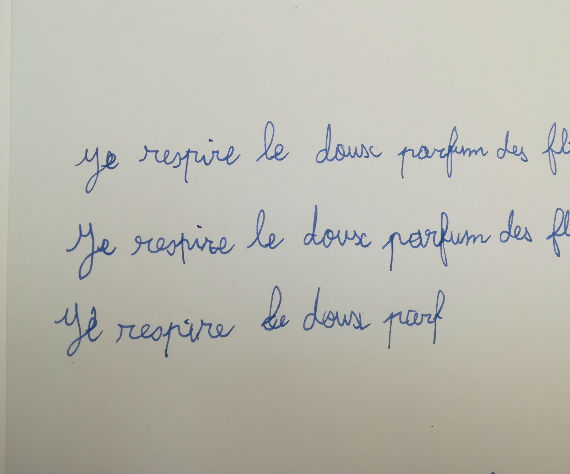 Je respire le doux parfum des fl
Je respire le doux parfum des fl
Je respire le doux parf